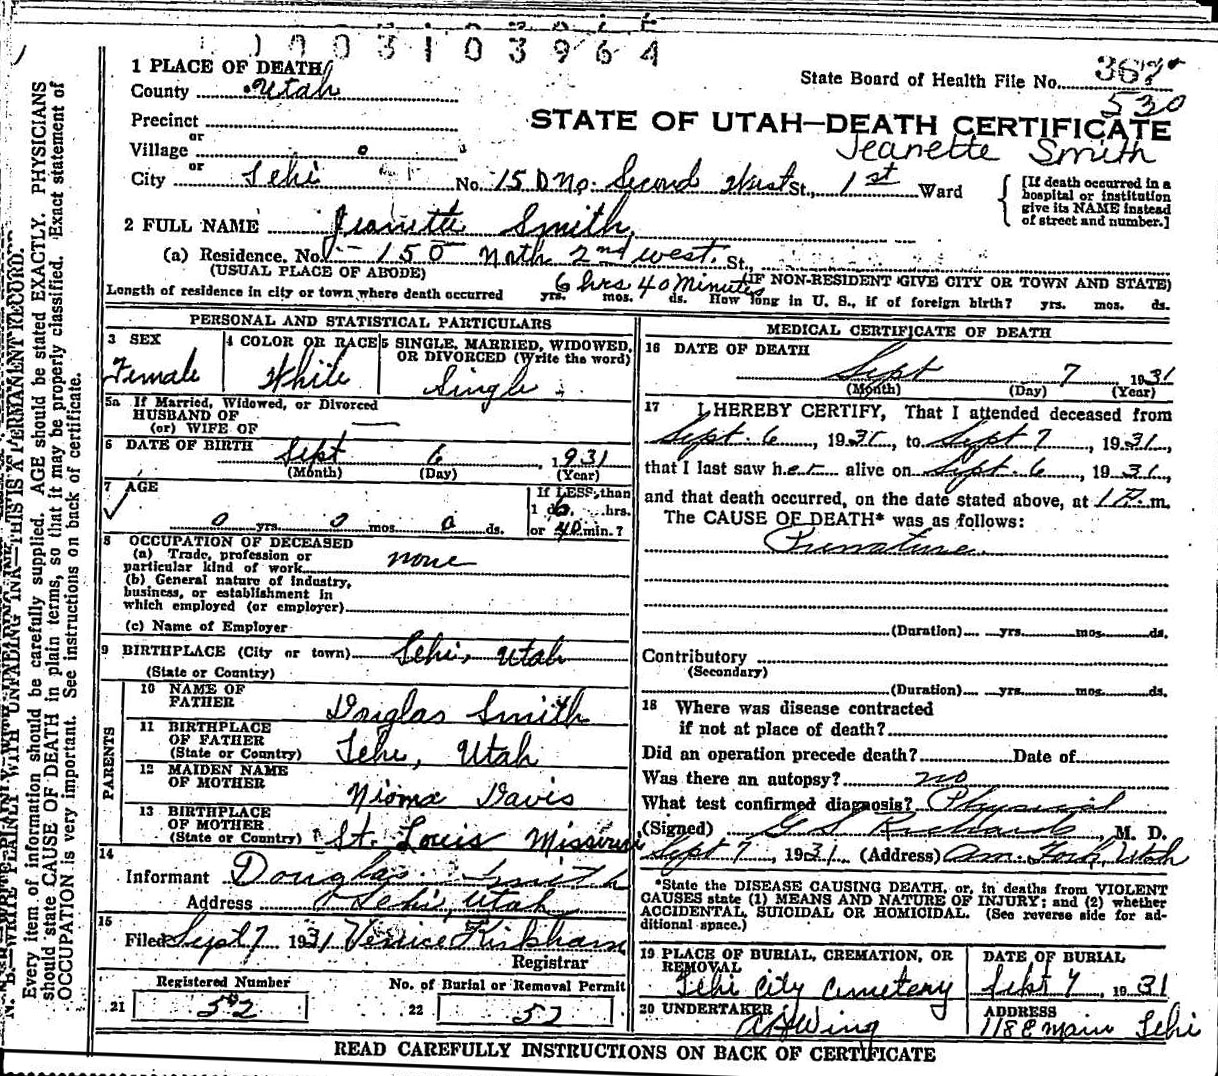 1003103964
1 PLACE OF DEATH
County Utah
State Board of Health File No. 367
530
Precinct
or
Village
or
STATE OF UTAH—DEATH CERTIFICATE
Jeanette Smith
City Lehi No. 150 No. Second West St., 1st Ward
[If death occurred in a
hospital or institution
give its NAME instead
of street and number.]
2 FULL NAME Jeanette Smith
(a) Residence. No. 150 North 2nd West. St.,
(USUAL PLACE OF ABODE) (IF NON-RESIDENT GIVE CITY OR TOWN AND STATE)
6 hrs 40 Minutes
Length of residence in city or town where death occurred yrs. mos. ds. How long in U. S., if of foreign birth? yrs. mos. ds.
PERSONAL AND STATISTICAL PARTICULARS
3 SEX
Female
4 COLOR OR RACE
White
5 SINGLE, MARRIED, WIDOWED,
OR DIVORCED (Write the word)
Single
5a If Married, Widowed, or Divorced
HUSBAND OF
(or) WIFE OF
6 DATE OF BIRTH Sept 6, 1931
(Month) (Day) (Year)
7 AGE
0 yrs. 0 mos. 0 ds.
If LESS than
1 d 6 hrs.
or 40 min.?
8 OCCUPATION OF DECEASED
(a) Trade, profession or
particular kind of work none
(b) General nature of industry,
business, or establishment in
which employed (or employer)
(c) Name of Employer
9 BIRTHPLACE (City or town) Lehi, Utah
(State or Country)
PARENTS
10 NAME OF
FATHER Douglas Smith
11 BIRTHPLACE
OF FATHER
(State or Country) Lehi, Utah
12 MAIDEN NAME
OF MOTHER Nioma Davis
13 BIRTHPLACE
OF MOTHER
(State or Country) St. Louis Missouri
14
Informant Douglas Smith
Address Lehi, Utah
15
Filed Sept 7 1931 Venice Kirkham
Registrar
Registered Number
21 52
No. of Burial or Removal Permit
22 52
MEDICAL CERTIFICATE OF DEATH
16 DATE OF DEATH
Sept 7 1931
(Month) (Day) (Year)
17 I HEREBY CERTIFY, That I attended deceased from
Sept. 6, 1931, to Sept 7, 1931,
that I last saw her alive on Sept. 6, 1931,
and that death occurred, on the date stated above, at 1 m.
The CAUSE OF DEATH* was as follows:
Premature
(Duration) yrs. mos. ds.
Contributory
(Secondary)
(Duration) yrs. mos. ds.
18 Where was disease contracted
if not at place of death?
Did an operation precede death? Date of
Was there an autopsy? no
What test confirmed diagnosis? Physical
(Signed) G S Richards, M. D.
Sept 7, 1931 (Address) Am. Fork, Utah
*State the DISEASE CAUSING DEATH, or, in deaths from VIOLENT
CAUSES state (1) MEANS AND NATURE OF INJURY; and (2) whether
ACCIDENTAL, SUICIDAL OR HOMICIDAL. (See reverse side for ad-
ditional space.)
19 PLACE OF BURIAL, CREMATION, OR
REMOVAL
Lehi City Cemetery
DATE OF BURIAL
Sept 7, 1931
20 UNDERTAKER
A H Wing
ADDRESS
118 E Main Lehi
READ CAREFULLY INSTRUCTIONS ON BACK OF CERTIFICATE
N. B. WRITE PLAINLY WITH UNFADING INK—THIS IS A PERMANENT RECORD.
Every item of information should be carefully supplied. AGE should be stated EXACTLY. PHYSICIANS
should state CAUSE OF DEATH in plain terms, so that it may be properly classified. Exact statement of
OCCUPATION is very important. See instructions on back of certificate.